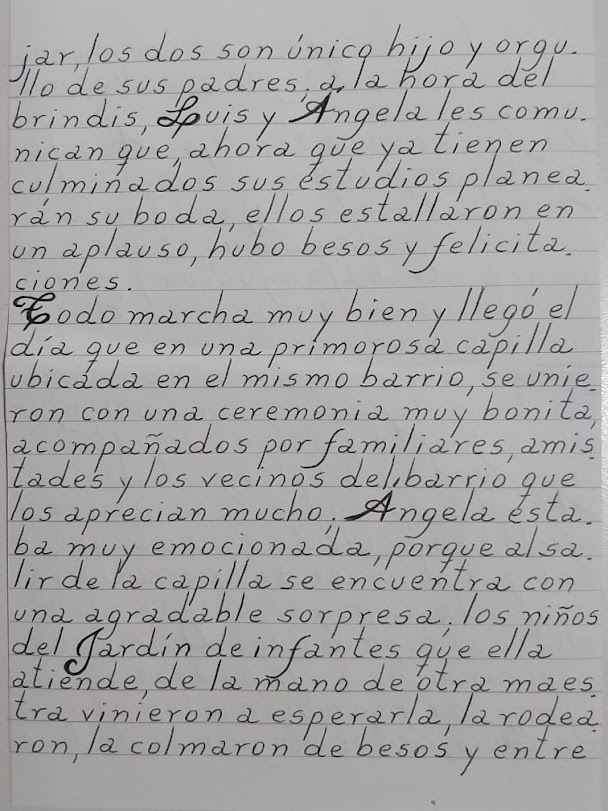 jar, los dos son único hijo y orgu.
llo de sus padres, a la hora del
brindis, Luis y Angela les comu.
nican que, ahora que ya tienen
culminados sus estudios planea.
rán su boda, ellos estallaron en
un aplauso, hubo besos y felicita.
ciones.
Todo marcha muy bien y llegó el
día que en una primorosa capilla
ubicada en el mismo barrio, se unie.
ron con una ceremonia muy bonita,
acompañados por familiares, amis.
tades y los vecinos del barrio que
los aprecian mucho; Angela esta.
ba muy emocionada, porque al sa.
lir de la capilla se encuentra con
una agradable sorpresa: los niños
del Jardín de infantes que ella
atiende, de la mano de otra maes.
tra vinieron a esperarla, la rodea.
ron, la colmaron de besos y entre